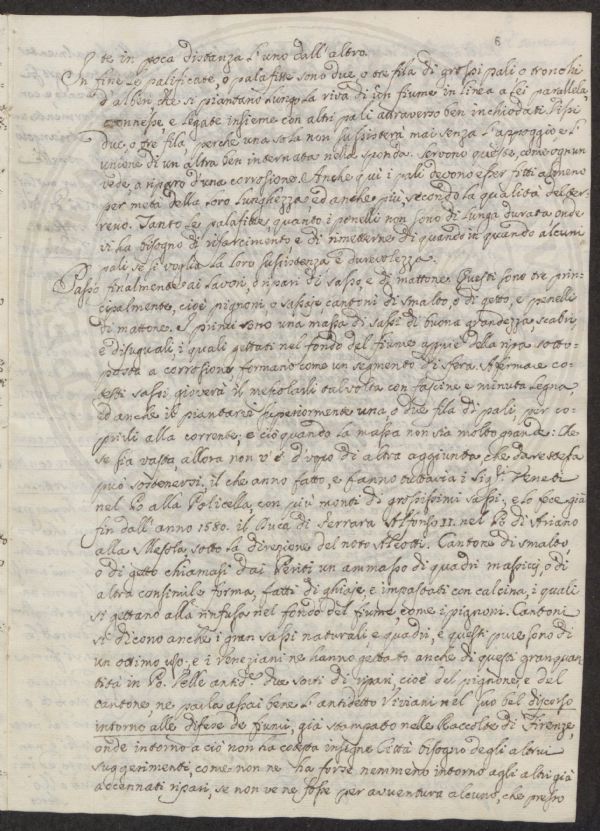 6
te in poca distanza l'uno dall'altro.
In fine le palificate, o palafitte sono due, o tre fila di grossi pali o tronchi
d'alberi, che si piantano lungo la riva di un fiume in linea a lei parallela
connesse, e legate insieme con altri pali attraverso ben inchiodati. Dissi
due, o tre fila, perche una sola non sussisterà mai senza l'appoggio e l'
unione di un altra ben internata nella sponda. Servono queste, come ognun
vede a riparo d'una corrosione. Anche quì i pali devono esser fitti almeno
per metà della loro lunghezza, ed anche più, secondo la qualità del ter-
reno. Tanto le palafitte, quanto i penelli non sono di lunga durata, onde
vi ha bisogno di risarcimento, e di rimetterne di quando in quando alcuni
pali se si voglia la loro sussistenza e durevolezza.
Passo finalmente ai lavori, o ripari di sasso, e di mattone. Questi sono tre prin-
cipalmente, cioè pignoni, o sassaje, cantoni di smalto, o di getto, e penelli
di mattone. I primi sono una massa di sassi di buona grandezza scabri
e disuguali, i quali gettati nel fondo del fiume appiè della ripa sotto-
posta a corrosione formano come un segmento di sfera. A fermare co-
testi sassi gioverà il mescolarli talvolta con fascine e minuta legna,
ed anche il piantarvi superiormente una, o due fila di pali, per co-
prirli alla corrente, e ciò quando la massa non sia molto grande: che
se sia vasta, allora non v'è d'uopo di altra aggiunta che da se stessa
può sostenersi, il che anno fatto, e fanno tuttavia i Sig.ri Veneti
nel Po alla Policella, con più monti di grossissimi sassi, e lo fece già
fin dall'anno 1580. il Duca di Ferrara Alfonso II. nel Po di Ariano
alla Mesola, sotto la direzione del noto Aleotti. Cantone di smalto,
o di getto chiamasi dai Periti un ammasso di quadri massicj, o di
altra consimile forma, fatti di ghiaje, e impastati con calcina, i quali
si gettano alla rinfusa nel fondo del fiume, come i pignoni. Cantoni
si dicono anche i gran sassi naturali, e quadri, e questi pure sono di
un ottimo uso, e i Veneziani ne hanno gettato anche di questi gran quan
tità in Po. Delle antid.e due sorti di ripari, cioè del pignone, e del
cantone, ne parla assai bene l'antidetto Viviani nel suo bel discorso
intorno alle difese de fiumi, già stampato nelle Raccolte di Firenze,
onde intorno a ciò non ha cotesta insigne Città bisogno degli altrui
suggerimenti, come non ne ha forse nemmeno intorno agli altri già
accennati ripari, se non ve ne fosse per avventura alcuno, che presso